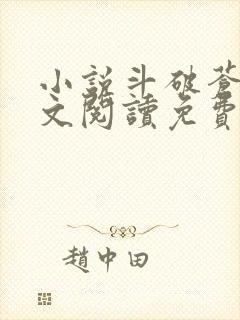 小說斗破蒼
文閱讀免費
趙中田